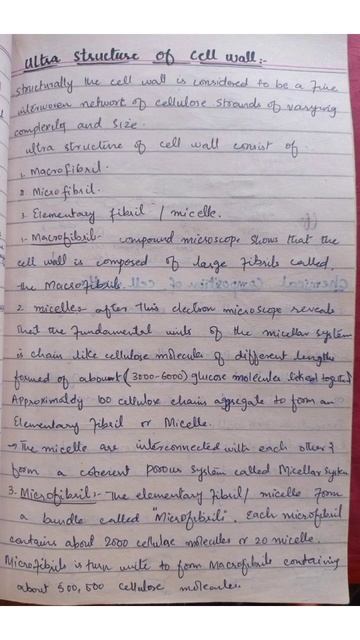 Ultra Structure of Cell wall:-
Structurally the cell wall is considered to be a fine
interwoven networt of cellulose strands of varying
complexity and size.
ultra structure of cell wall consist of
1. Macrofibril.
2. Microfibril.
3. Elementary fibril / micelle.
1. Macrofibril- compound microscope shows that the
cell wall is composed of large fibrils called
the Macrofibrils.
2. micelles- after this electron microscope reveals
that the fundamental units of the micellar system
is chain like cellulose molecules of different lengths
formed of about (3000-6000) glucose molecules linked together
Approximately 100 cellulose chains aggregate to form an
Elementary fibril or Micelle.
→ The micelle are interconnected with each other &
form a coherent porous system called Micellar system
3. Microfibril:- The elementary fibril/ micelle form
a bundle called "Microfibrils". Each microfibril
contains about 2000 cellulose molecules or 20 micelle.
Microfibrils is turn unite to form Macrofibrils containing
about 500,000 cellulose molecules.